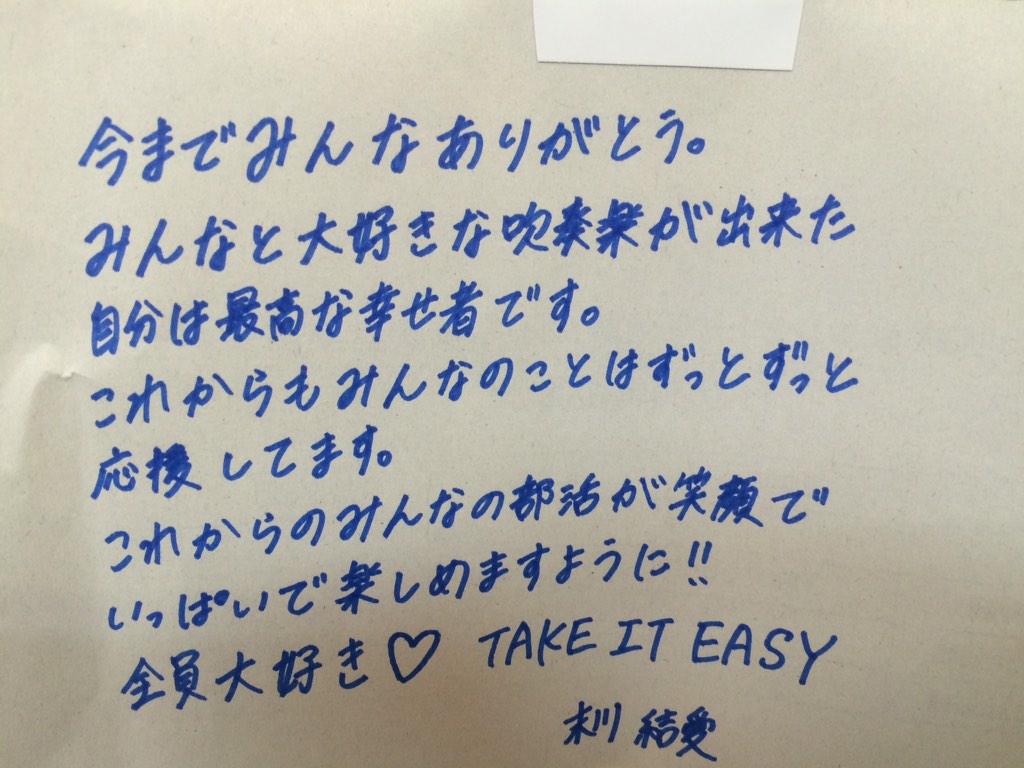 今までみんなありがとう。
みんなと大好きな吹奏楽が出来た
自分は最高な幸せ者です。
これからもみんなのことはずっとずっと
応援してます。
これからのみんなの部活が笑顔で
いっぱいで楽しめますように!!
全員大好き♡ TAKE IT EASY
末川 結愛